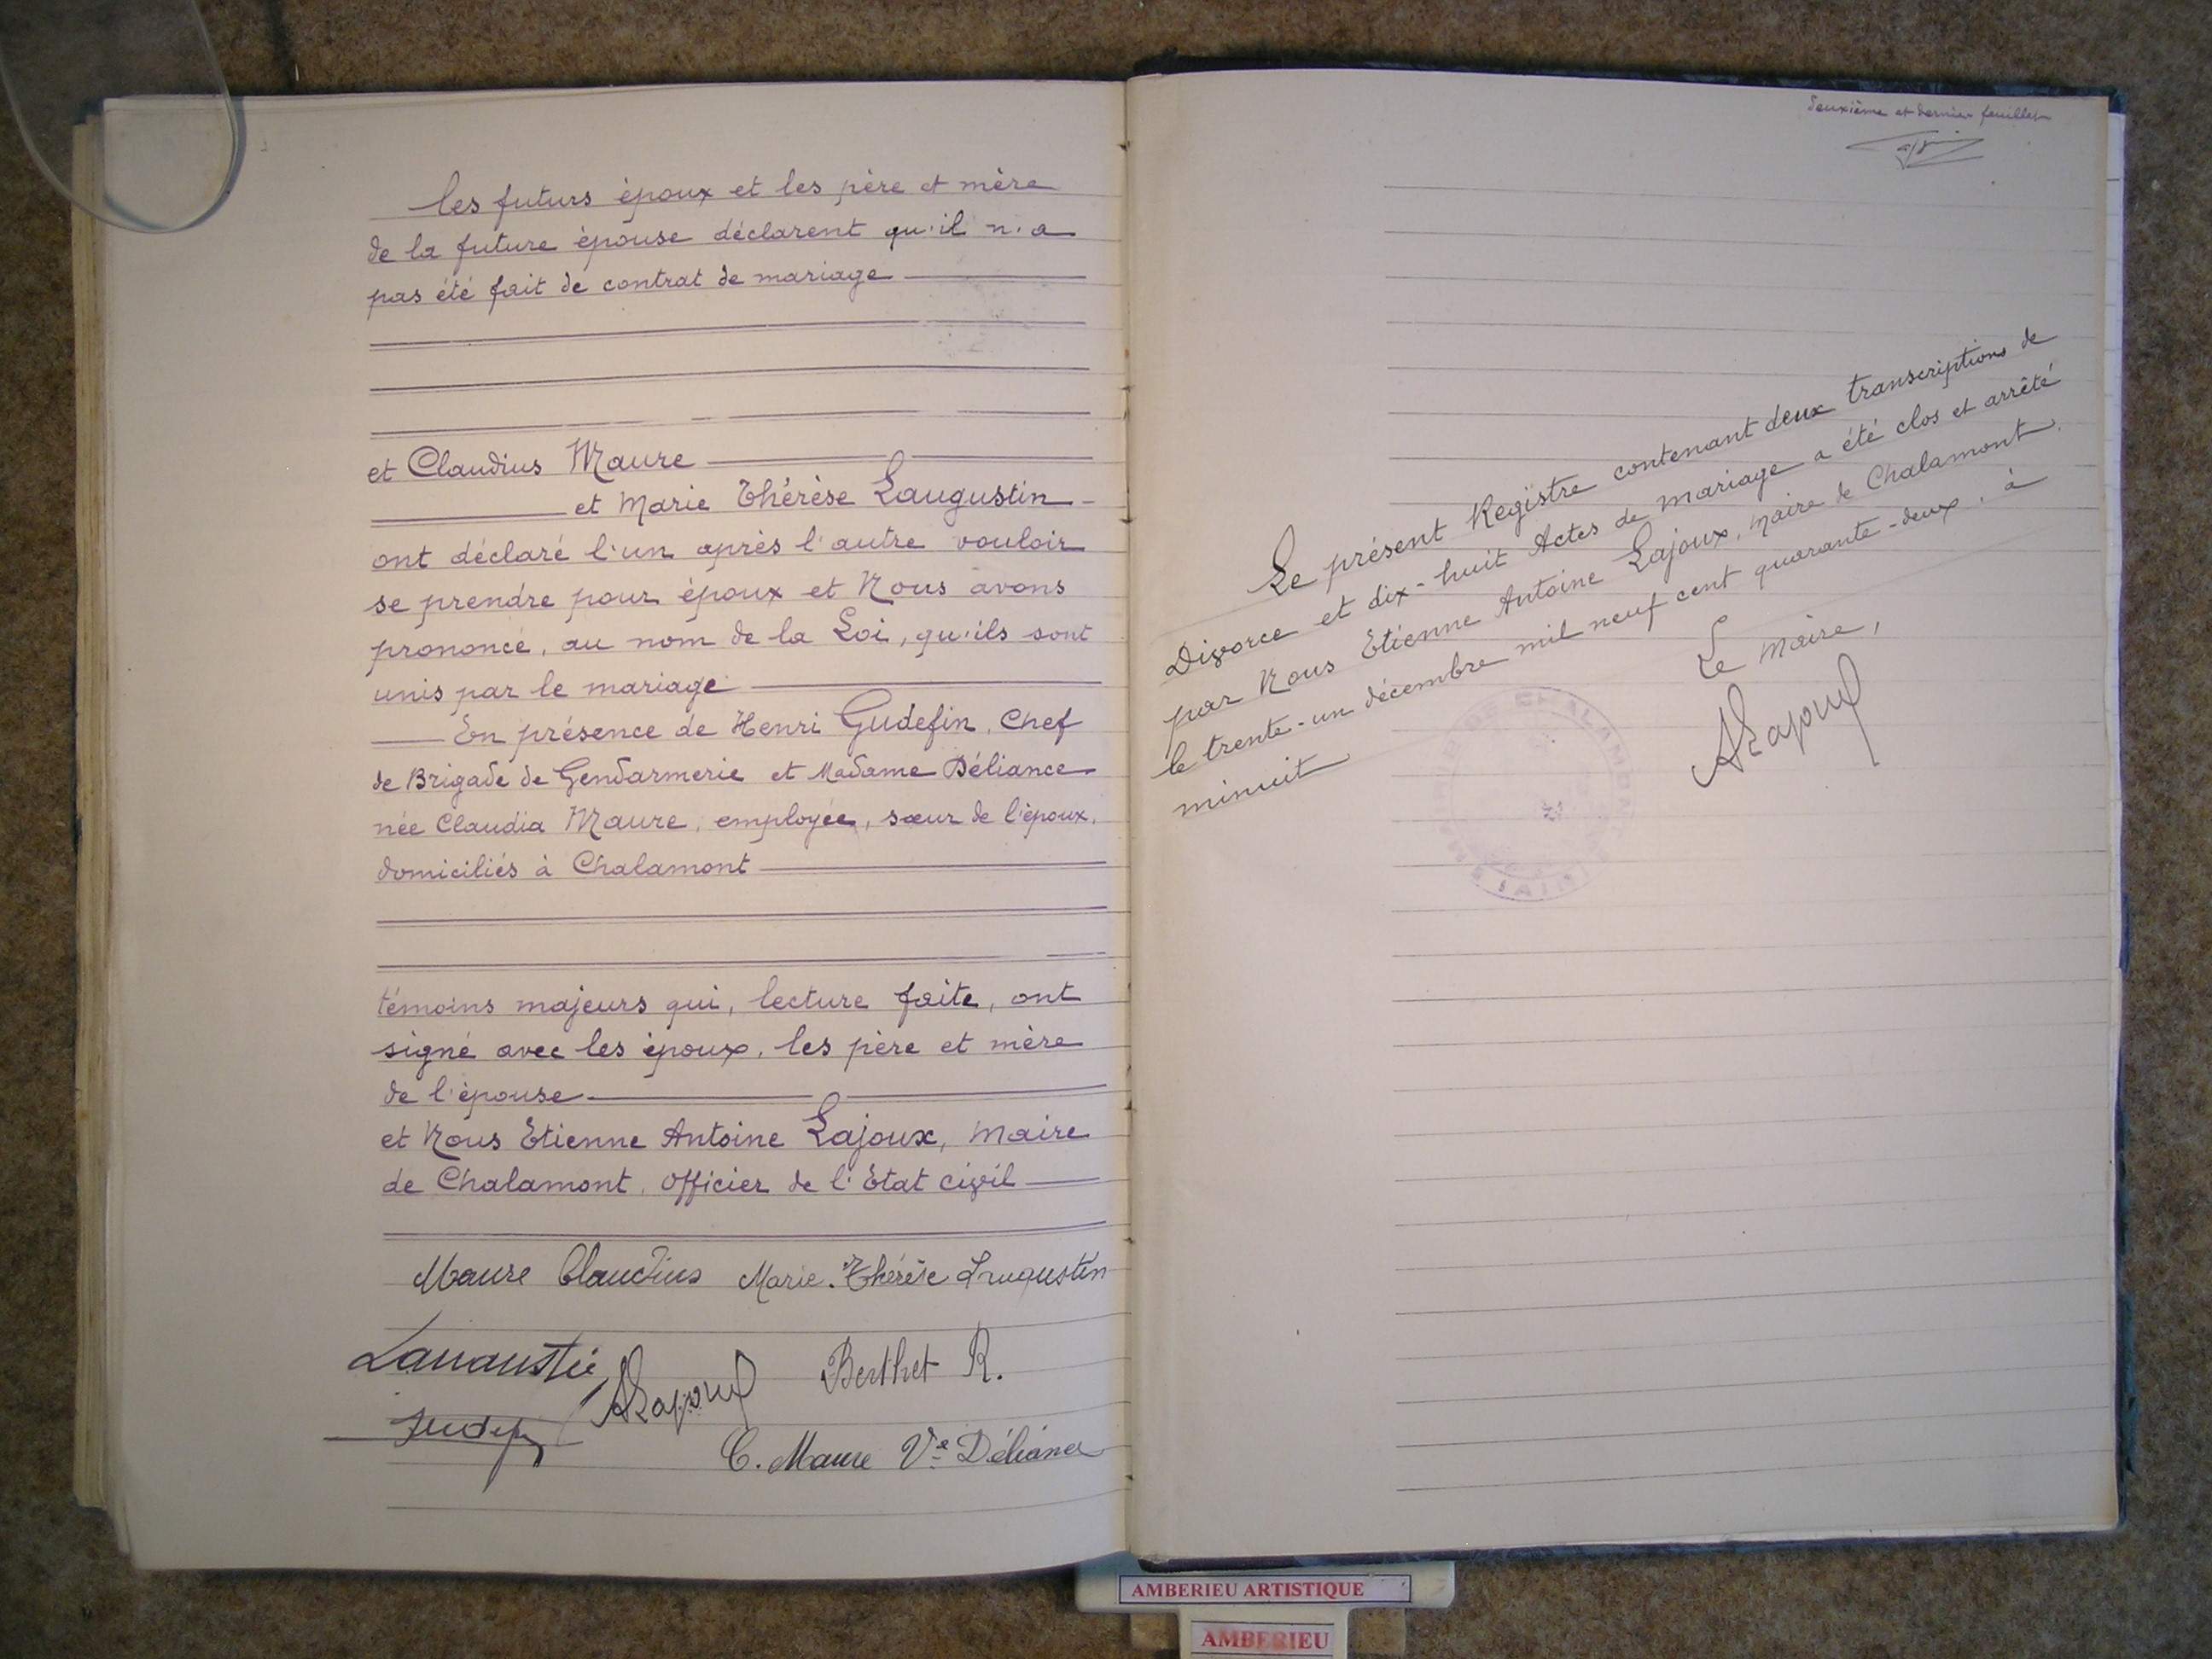 les futurs époux et les père et mère
de la future épouse déclarent qu'il n'a
pas été fait de contrat de mariage
et Claudius Maure
et Marie Thérèse Laugustin
ont déclaré l'un après l'autre vouloir
se prendre pour époux et Nous avons
prononcé, au nom de la Loi, qu'ils sont
unis par le mariage
En présence de Henri Gudefin, Chef
de Brigade de Gendarmerie et Madame Déliance
née Claudia Maure, employée, sœur de l'époux,
domiciliés à Chalamont
témoins majeurs qui, lecture faite, ont
signé avec les époux, les père et mère
de l'épouse
et Nous Etienne Antoine Lajoux, Maire
de Chalamont, Officier de l'Etat civil
Maure Claudius Marie-Thérèse Laugustin
Laugustin
ALajoux Berthet R.
Gudefin
C. Maure Vve Déliance
deuxième et dernier feuillet
Le présent Registre contenant deux transcriptions de
Divorce et dix-huit Actes de Mariage a été clos et arrêté
par Nous Etienne Antoine Lajoux, Maire de Chalamont,
le trente-un décembre mil neuf cent quarante-deux, à
minuit
Le Maire,
ALajoux
MAIRIE DE CHALAMONT
AIN
AMBERIEU ARTISTIQUE
AMBERIEU